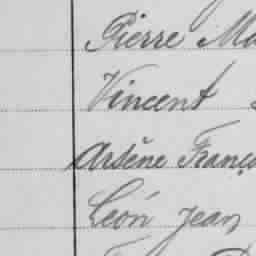 Pierre Ma
Vincent
Arsène Franç
Léon Jean